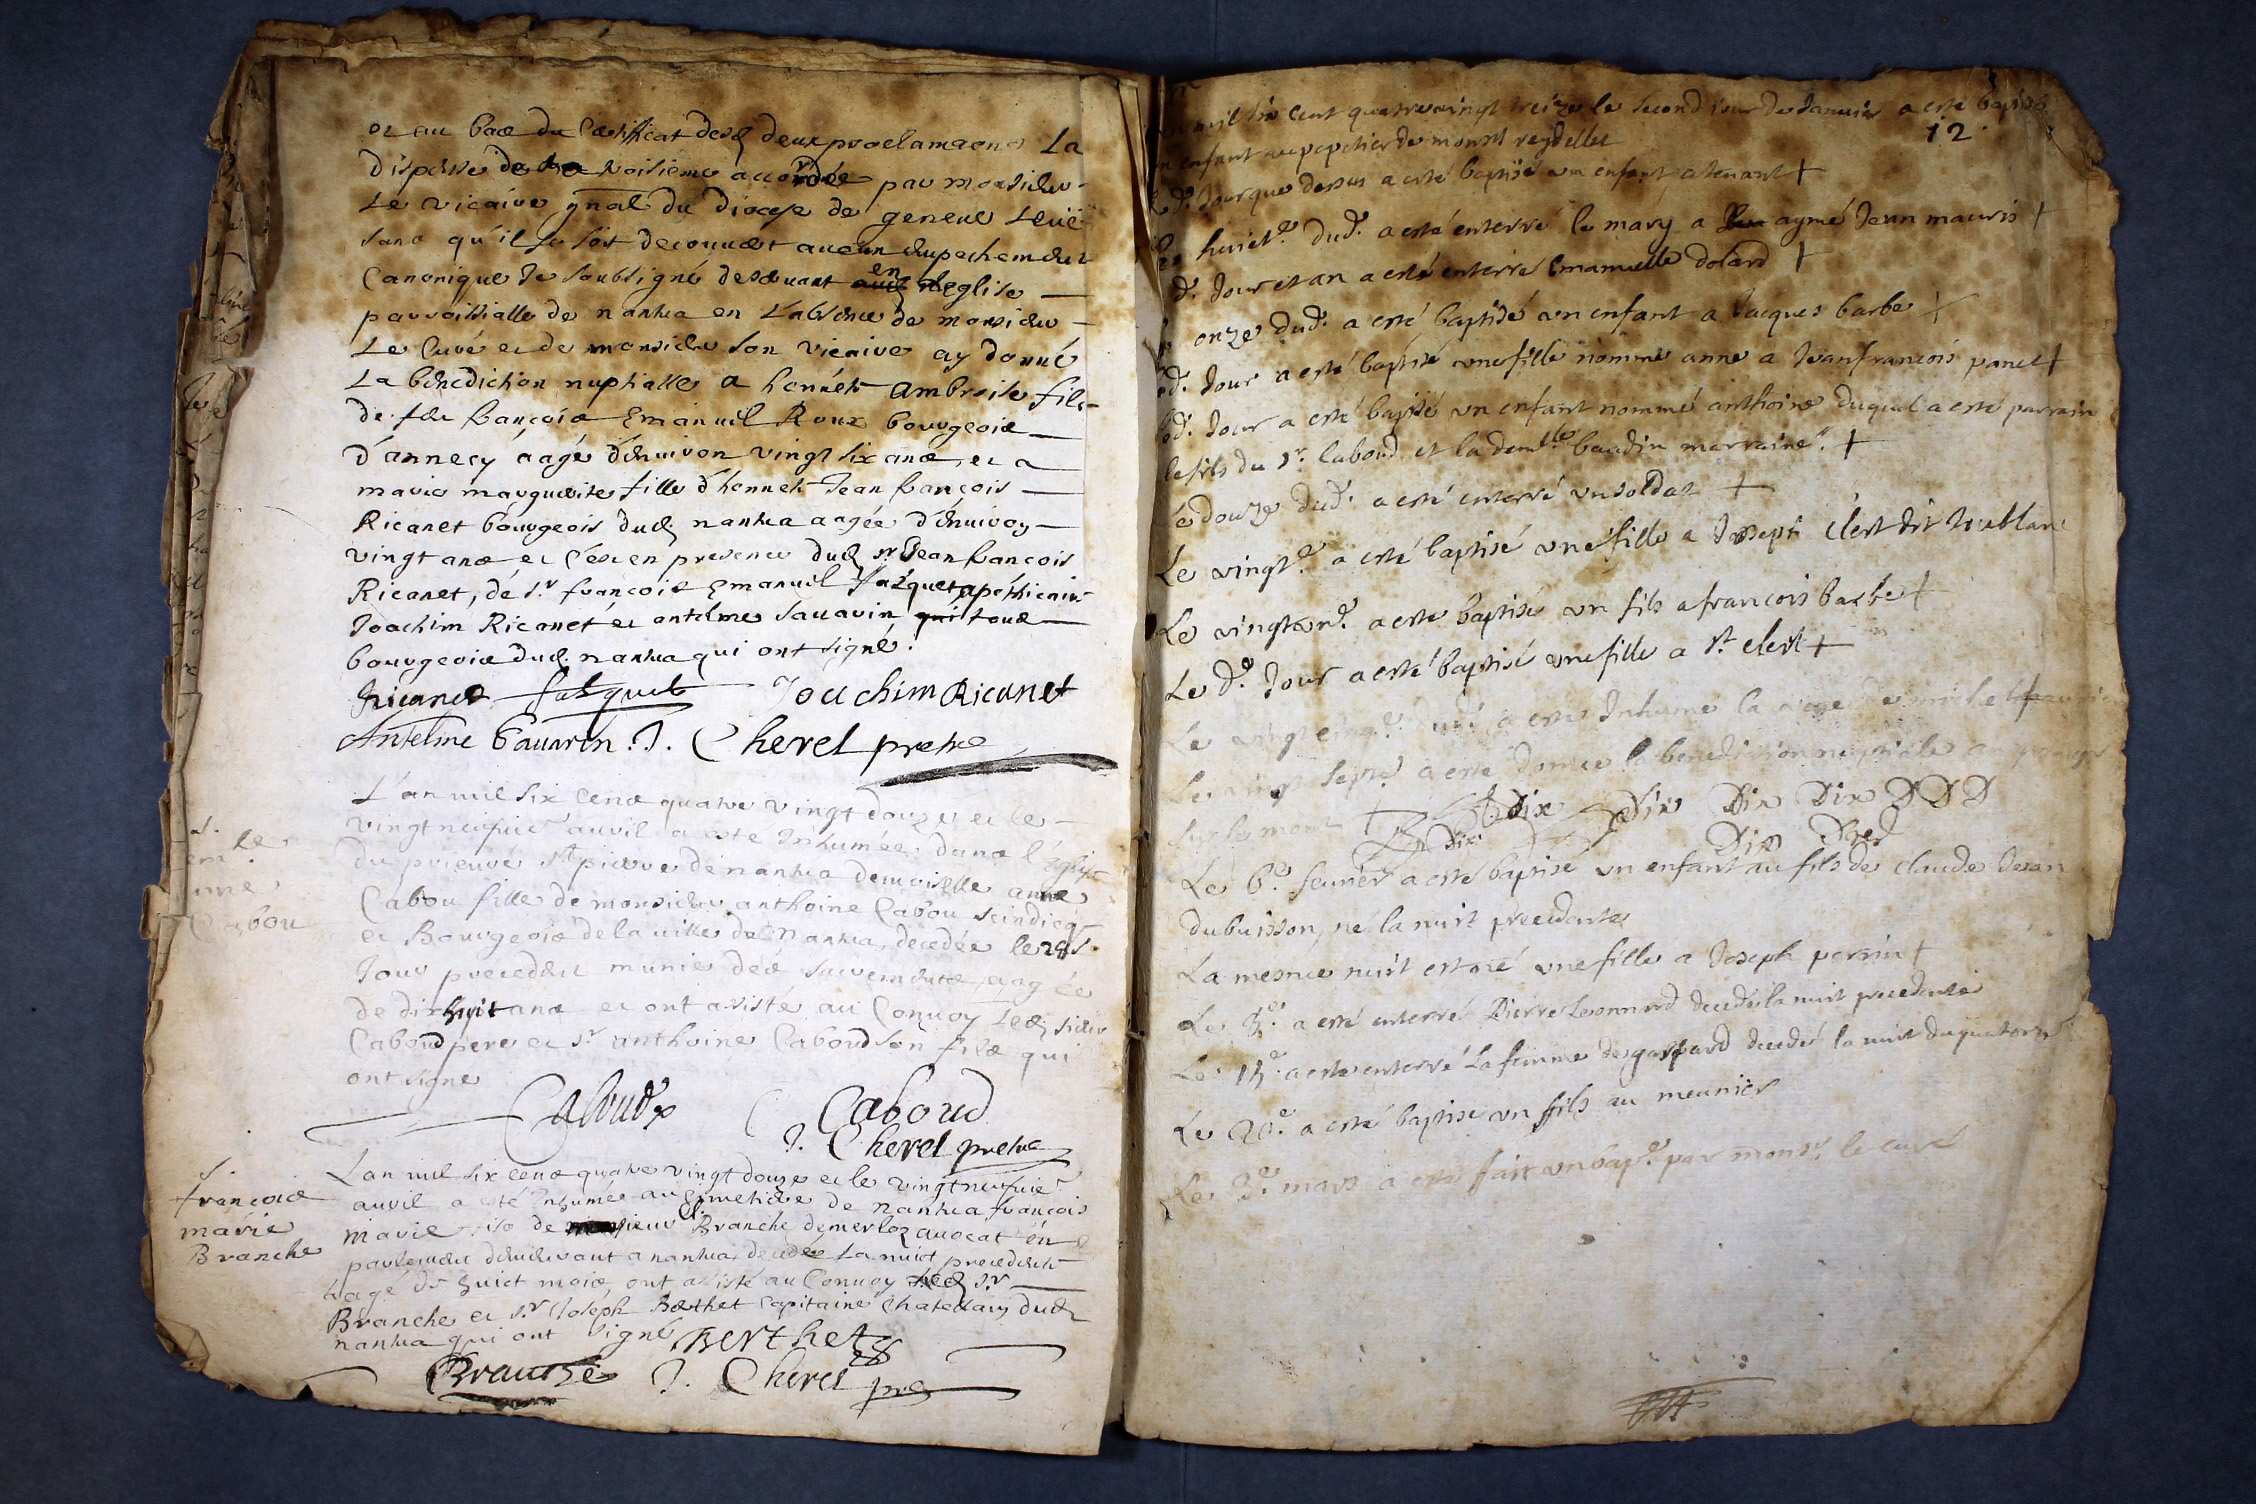 et au bas du Certifficat desd deux proclamaons La
dispense de la troisieme accordée par monsieur
Le vicaire gnal du diocese de geneve
sans qu'il se soit decouvert aucun Empechement
Canonique Je soubsigné deservant en l'eglise
parroissialle de nantua en L'absence de monsieur
Le Curé et de monsieur son vicaire ay donné
La benediction nuptialle a honnête Ambroise fils
de feu françois Emanuel Roux bourgeois
d'annecy aagé d'environ vingt six ans, et a
marie marguerite fille d'honnete Jean françois
Ricanet bourgeois dud. nantua aagée d'environ
vingt ans et C'es en presence dud sr Jean francois
Ricanet, de sr françois Emanuel apothicaire
Joachim Ricanet et antelme sauarin tous
bourgeois dud. nantua qui ont signé.
Ricanet Joachim Ricanet
Antelme Sauarin. J. Cheret pretre
L'an mil six cens quatre vingt douze et le
vingt neufvie avril a este Inhumée dans l'église
du prieuré st pierre de nantua demoiselle anne
Cabou fille de monsieur anthoine Cabou scindicq
et Bourgeois de la ville de Nantua, decedée le 28
Jour precedent munie des sacrements aagée
de dix huit ans et ont assisté au Convoy led sieur
Caboud pere et sr anthoine Caboud son fils qui
ont signe
Caboud Caboud
J. Cheret pretre
françois
marie
Branche
L'an mil six cens quatre vingt douze et le vingt neufvie
avril a esté Inhumée au Cimetiere de nantua françois
marie fils de Branche avocat en
parlement demeurant a nantua, decede La nuict precedente
aagé de huict mois, ont assisté au Convoy led sr
Branche et sr Joseph Berthet Capitaine Chatellain dud
nantua qui ont signé Berthet
Branche J. Cheret pre
12
mil six cent quatrevingt treize le second jour de Janvier a esté baptisé
un enfant monsr reydellet
led. Jour que dessus a esté baptisé un enfant a tenant +
Le huict.e dud. a esté enterré le mary a aymé Jean mauris +
d. Jour et an a esté enterré Emanuelle dolard +
onze dud. a esté baptisé un enfant a Jacques barbe +
led. Jour a esté baptisé une fille nommé anne a Jean francois panet +
led. Jour a esté baptisé un enfant nommé anthoine duquel a esté parrain
le fils du sr. Caboud et la demlle baudin marraine. +
Le douze dud. a esté enterré un soldat +
Le vingt.e a esté baptisé une fille a Joseph clert dit
Le a esté baptisé un fils a francois barbe +
Le d. Jour a esté baptisé une fille a sr clert +
Le vingt cinq.e a esté Inhumé la
Le vingt sept.e a esté donnee la benediction nuptiale
sur le mont +
Dix Dix Dix Dix D D D
Dix Dix
Le 6.e fevrier a esté baptisé un enfant au fils de claude Jean
dubuisson, né la nuit precedente
La mesme nuit est né une fille a Joseph perrin +
Le a esté enterré Pierre Leonnard decedé la nuit precedente
Le a esté enterré La femme de gaspard decedé la nuit
Le 20.e a esté baptisé un fils au meunier
Le mars a esté fait un bap.e par monsr. le curé